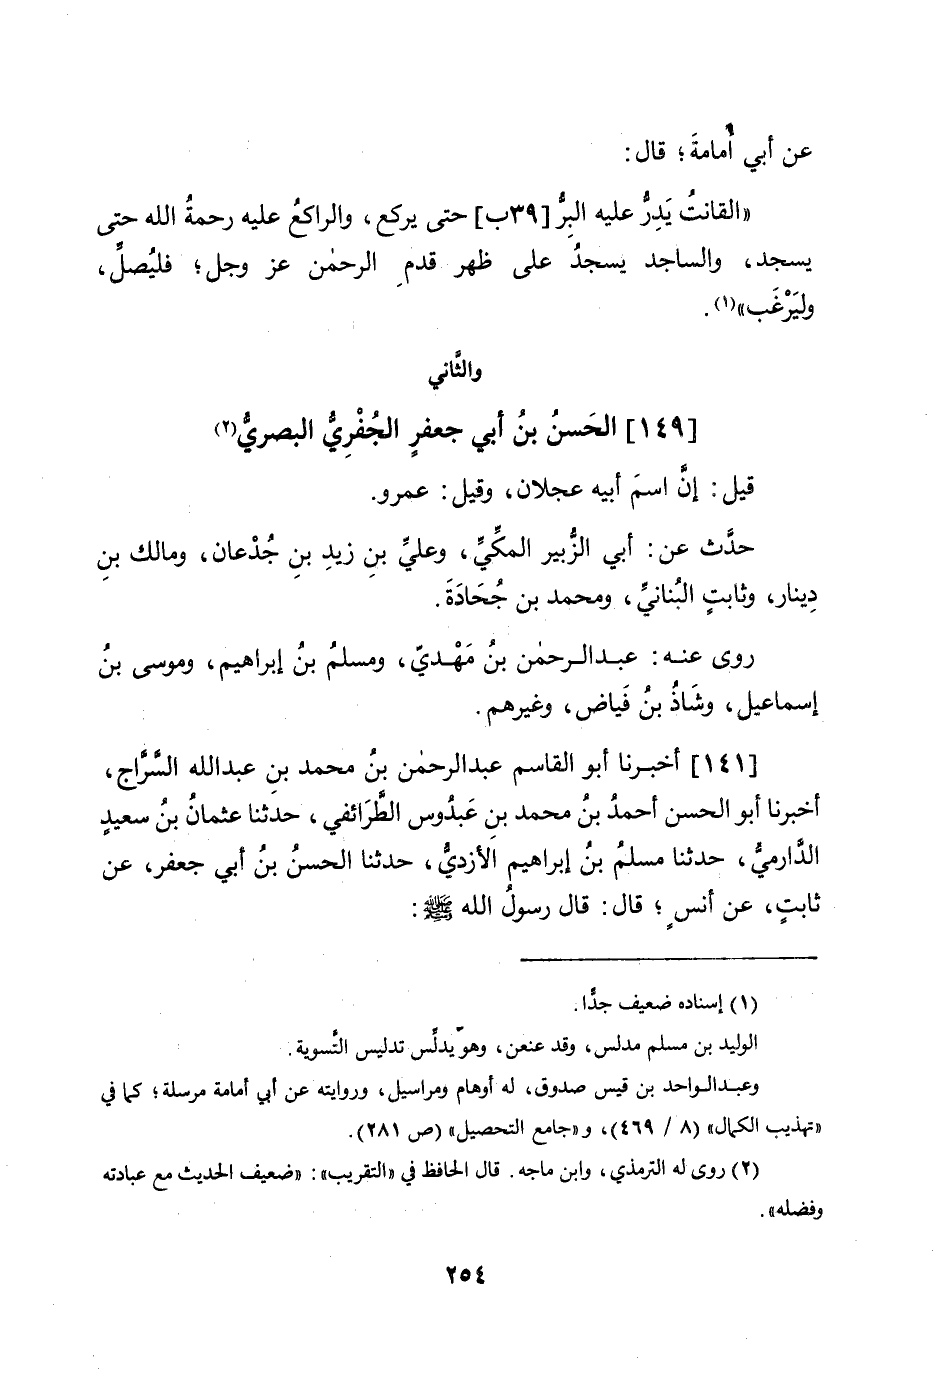 عن أبي أُمامةَ؛ قال:
«القانتُ يَدِرُّ عليه البِرُّ [٣٩ب] حتى يركع، والراكعُ عليه رحمةُ الله حتى
يسجد، والساجد يسجدُ على ظهر قدمِ الرحمٰن عز وجل؛ فليُصلِّ،
وليَرْغَب»(١).
والثَّاني
[١٤٩] الحَسنُ بنُ أبي جعفرٍ الجُفْرِيُّ البصريُّ(٢)
قيل: إنَّ اسمَ أبيه عجلان، وقيل: عمرو.
حدَّث عن: أبي الزُّبير المكِّيِّ، وعليِّ بنِ زيدِ بنِ جُدْعان، ومالك بنِ
دِينار، وثابتٍ البُنانيِّ، ومحمد بن جُحَادَةَ.
روى عنه: عبدالرحمٰن بنُ مَهْديّ، ومسلمُ بنُ إبراهيم، وموسى بنُ
إسماعيل، وشَاذُ بنُ فَياض، وغيرهم.
[١٤١] أخبرنا أبو القاسم عبدالرحمٰن بنُ محمد بنِ عبدالله السَّرَّاج،
أخبرنا أبو الحسن أحمدُ بنُ محمد بنِ عَبدُوس الطَّرَائفي، حدثنا عثمانُ بنُ سعيدٍ
الدَّارميُّ، حدثنا مسلمُ بنُ إبراهيم الأزديُّ، حدثنا الحسنُ بنُ أبي جعفر، عن
ثابتٍ، عن أنسٍ؛ قال: قال رسولُ الله ﷺ:
(١) إسناده ضعيف جدًّا.
الوليد بن مسلم مدلس، وقد عنعن، وهو يدلِّس تدليس التَّسوية.
وعبدالواحد بن قيس صدوق، له أوهام ومراسيل، وروايته عن أبي أمامة مرسلة؛ كما في
«تهذيب الكمال» (٨ / ٤٦٩)، و«جامع التحصيل» (ص ٢٨١).
(٢) روى له الترمذي، وابن ماجه. قال الحافظ في «التقريب»: «ضعيف الحديث مع عبادته
وفضله».
٢٥٤